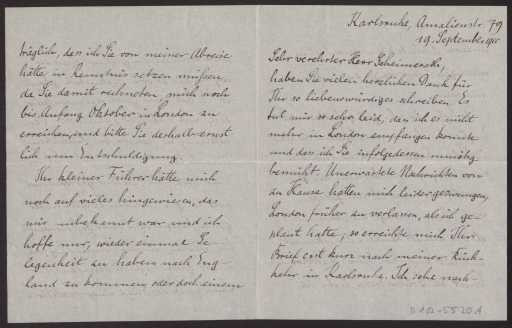 Karlsruhe, Amalienstr. 79
19. September
Sehr verehrter Herr Geheimrath,
haben Sie vielen herzlichen Dank für
Ihr so liebenswürdiges Schreiben. Es
tut mir so sehr leid, dass ich es nicht
mehr in London empfangen konnte
und dass ich Sie infolgedessen unnötig
bemüht. Unerwartete Nachrichten von
zu Hause hatten mich leider gezwungen,
London früher zu verlassen, als ich ge-
plant hatte, so erreichte mich Ihr
Brief erst kurz nach meiner Rück-
kehr in Karlsruhe. Ich sehe nach-
träglich, dass ich Sie von meiner Abreise
hätte in Kenntnis setzen müssen,
da Sie damit rechneten mich noch
bis Anfang Oktober in London zu
erreichen, und bitte Sie deshalb ernst
lich um Entschuldigung.
Ihr kleiner Führer hätte mich
noch auf vieles hingewiesen, das
mir unbekannt war, und ich
hoffe nur, wieder einmal Ge
legenheit zu haben nach Eng-
land zu kommen, oder doch einem